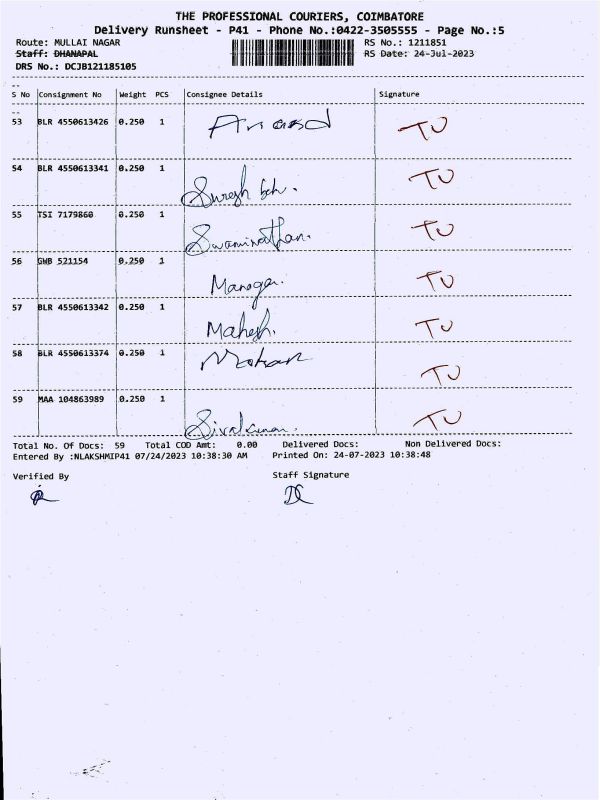 THE PROFESSIONAL COURIERS, COIMBATORE
Delivery Runsheet - P41 - Phone No.:0422-3505555 - Page No.:5
Route: MULLAI NAGAR RS No.: 1211851
Staff: DHANAPAL RS Date: 24-Jul-2023
DRS No.: DCJB121185105
S No Consignment No Weight PCS Consignee Details Signature
53 BLR 4550613426 0.250 1 Anand TU
54 BLR 4550613341 0.250 1 Suresh TU
55 TSI 7179860 0.250 1 Swaminathan. TU
56 GWB 521154 0.250 1 Manager. TU
57 BLR 4550613342 0.250 1 Mahesh. TU
58 BLR 4550613374 0.250 1 Mohan TU
59 MAA 104863989 0.250 1 Sivakumar. TU
Total No. Of Docs: 59 Total COD Amt: 0.00 Delivered Docs: Non Delivered Docs:
Entered By :NLAKSHMIP41 07/24/2023 10:38:30 AM Printed On: 24-07-2023 10:38:48
Verified By Staff Signature